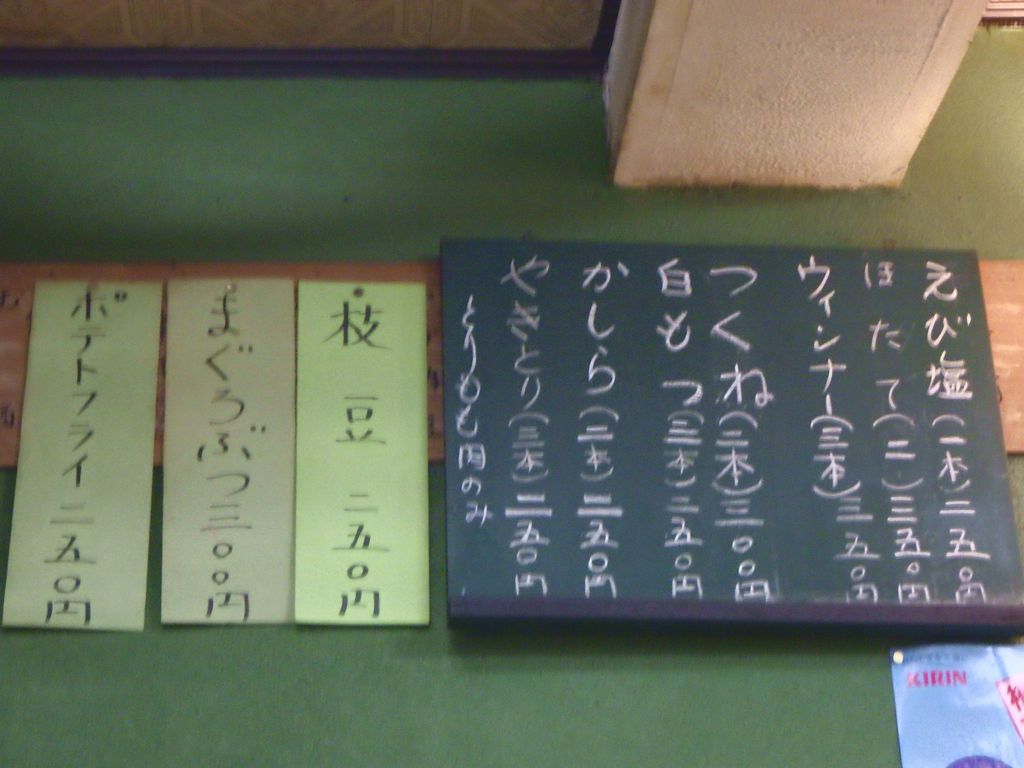 えび塩(一本)二五〇円
ほたて(二〃)三五〇円
ウィンナー(三本)三五〇円
つくね(二本)三〇〇円
白もつ(三本)二五〇円
かしら(二本)二五〇円
やきとり(三本)二五〇円
枝豆 二五〇円
まぐろぶつ三〇〇円
ポテトフライ二五〇円
KIRIN